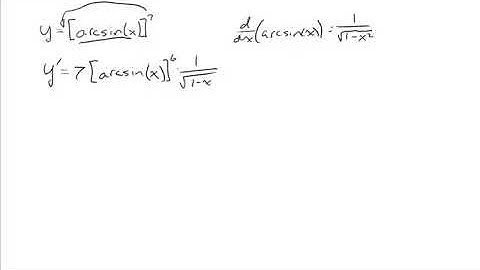 y = [arcsin(x)]^7
d/dx (arcsin(x)) = 1/√(1-x^2)
y' = 7 [arcsin(x)]^6 · 1/√(1-x)